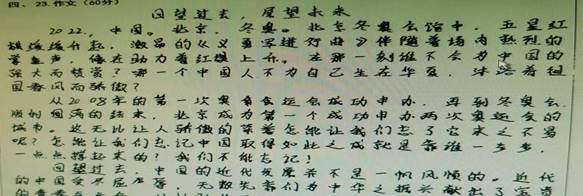 四、23.作文（60分）
回望过去 展望未来
2022，中国。北京，冬奥。北京冬奥会馆中，五星红
旗缓缓升起，激昂的《义勇军进行曲》伴随着场内热烈的
掌声，像在助力着红旗上升。在那一刻谁不会为中国的
强大而赞赏？哪一个中国人不为自己生在华夏，沐浴着祖
国春风而骄傲？
从2008年的第一次奥运会成功申办，再到冬奥会
顺利圆满的结束，北京成为第一个成功申办两次奥运会的
城市。这无比让人骄傲的荣誉怎能让我们忘了它来之不易
呢？怎能让我们忘记中国取得如此之成就是靠谁一步步、
一点点撑起来的？我们不能忘记！
回望过去，中国的近代发展并不是一帆风顺的。近代
的中国受尽屈辱，无数先辈们为中华之振兴献出了宝贵